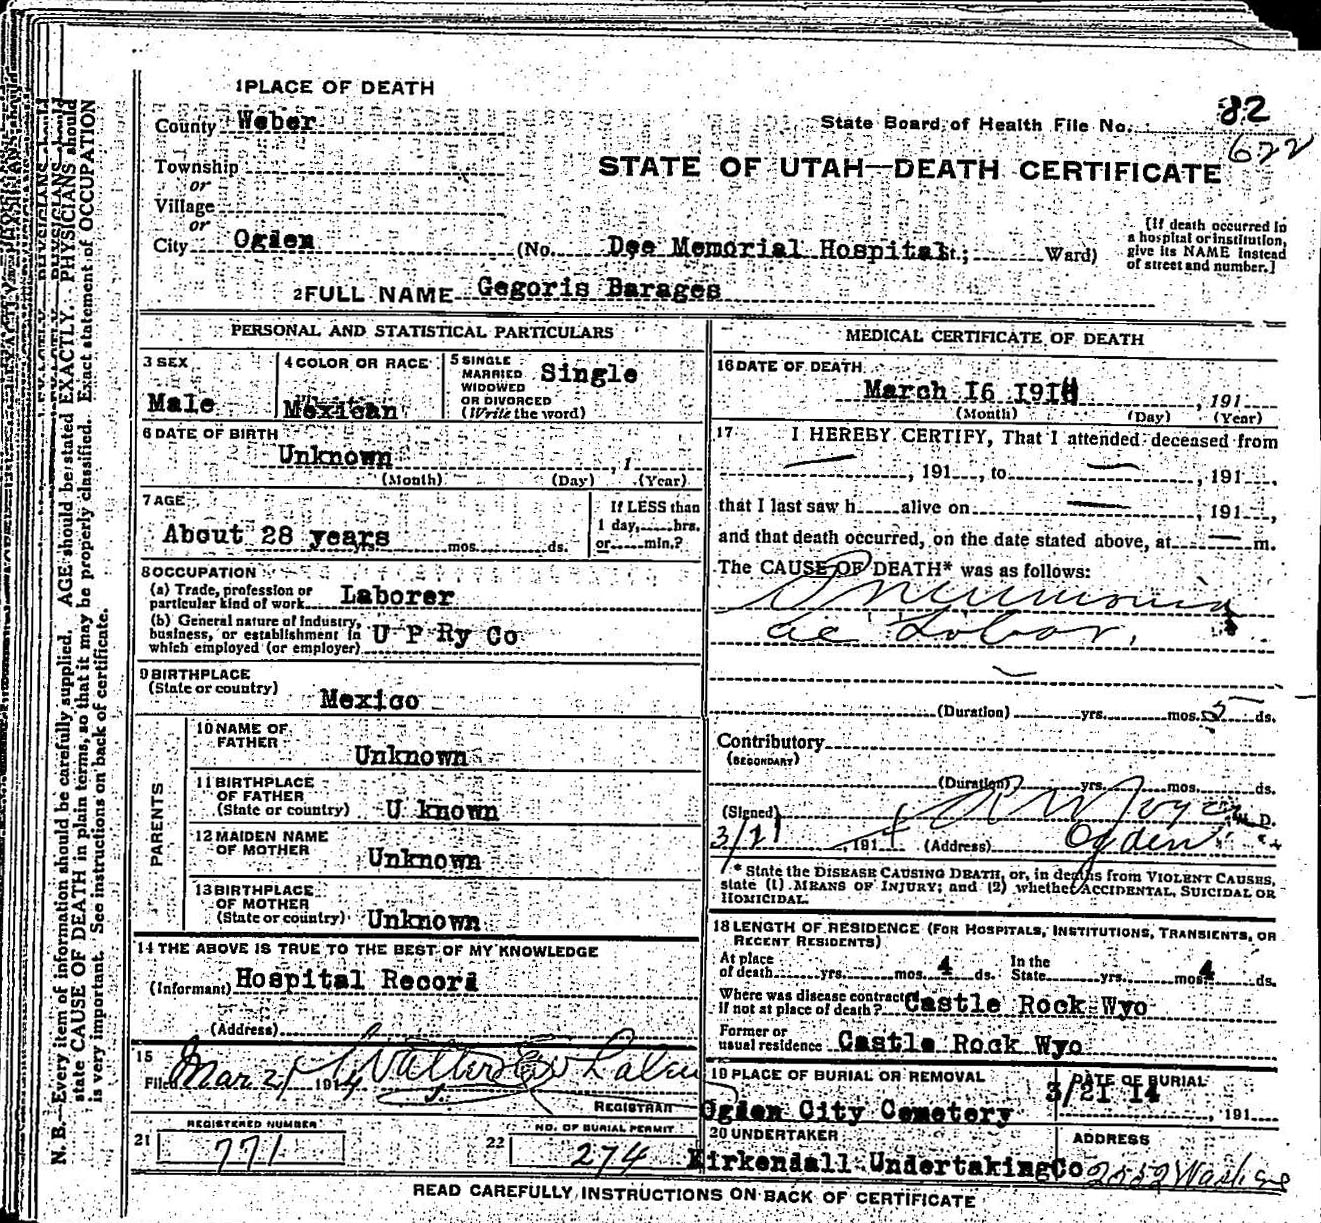 82
622
1 PLACE OF DEATH
County Weber
State Board of Health File No.
STATE OF UTAH—DEATH CERTIFICATE
Township
or
Village
or
City Ogden (No. Dee Memorial Hospital St.; Ward)
[If death occurred in a hospital or institution, give its NAME instead of street and number.]
2 FULL NAME Gegoris Barages
PERSONAL AND STATISTICAL PARTICULARS
3 SEX
Male
4 COLOR OR RACE
Mexican
5 SINGLE
MARRIED
WIDOWED
OR DIVORCED
(Write the word)
Single
6 DATE OF BIRTH
Unknown , 1
(Month) (Day) (Year)
7 AGE
About 28 years
yrs. mos. ds.
If LESS than
1 day, hrs.
or min.?
8 OCCUPATION
(a) Trade, profession or
particular kind of work Laborer
(b) General nature of industry,
business, or establishment in
which employed (or employer) U P Ry Co
9 BIRTHPLACE
(State or country)
Mexico
PARENTS
10 NAME OF
FATHER
Unknown
11 BIRTHPLACE
OF FATHER
(State or country) U known
12 MAIDEN NAME
OF MOTHER
Unknown
13 BIRTHPLACE
OF MOTHER
(State or country) Unknown
14 THE ABOVE IS TRUE TO THE BEST OF MY KNOWLEDGE
(Informant) Hospital Record
(Address)
15
Filed Mar 21 1914
REGISTRAR
REGISTERED NUMBER
21 771
NO. OF BURIAL PERMIT
22 274
MEDICAL CERTIFICATE OF DEATH
16 DATE OF DEATH
March 16 1914 , 191
(Month) (Day) (Year)
17 I HEREBY CERTIFY, That I attended deceased from
, 191 , to , 191 ,
that I last saw h alive on , 191 ,
and that death occurred, on the date stated above, at m.
The CAUSE OF DEATH* was as follows:
Pneumonia
ac Lobar.
(Duration) yrs. mos. 5 ds.
Contributory
(SECONDARY)
(Duration) yrs. mos. ds.
(Signed) M. D.
3/21 , 1914 (Address) Ogden
* State the DISEASE CAUSING DEATH, or, in deaths from VIOLENT CAUSES,
state (1) MEANS OF INJURY; and (2) whether ACCIDENTAL, SUICIDAL OR
HOMICIDAL.
18 LENGTH OF RESIDENCE (FOR HOSPITALS, INSTITUTIONS, TRANSIENTS, OR
RECENT RESIDENTS)
At place In the
of death yrs. mos. 4 ds. State yrs. mos. 4 ds.
Where was disease contracted
if not at place of death? Castle Rock Wyo
Former or
usual residence Castle Rock Wyo
19 PLACE OF BURIAL OR REMOVAL
Ogden City Cemetery
DATE OF BURIAL
3/21 14 , 191
20 UNDERTAKER
Kirkendall Undertaking Co
ADDRESS
READ CAREFULLY INSTRUCTIONS ON BACK OF CERTIFICATE
N. B.—Every item of information should be carefully supplied. AGE should be stated EXACTLY. PHYSICIANS should
state CAUSE OF DEATH in plain terms, so that it may be properly classified. Exact statement of OCCUPATION
is very important. See instructions on back of certificate.